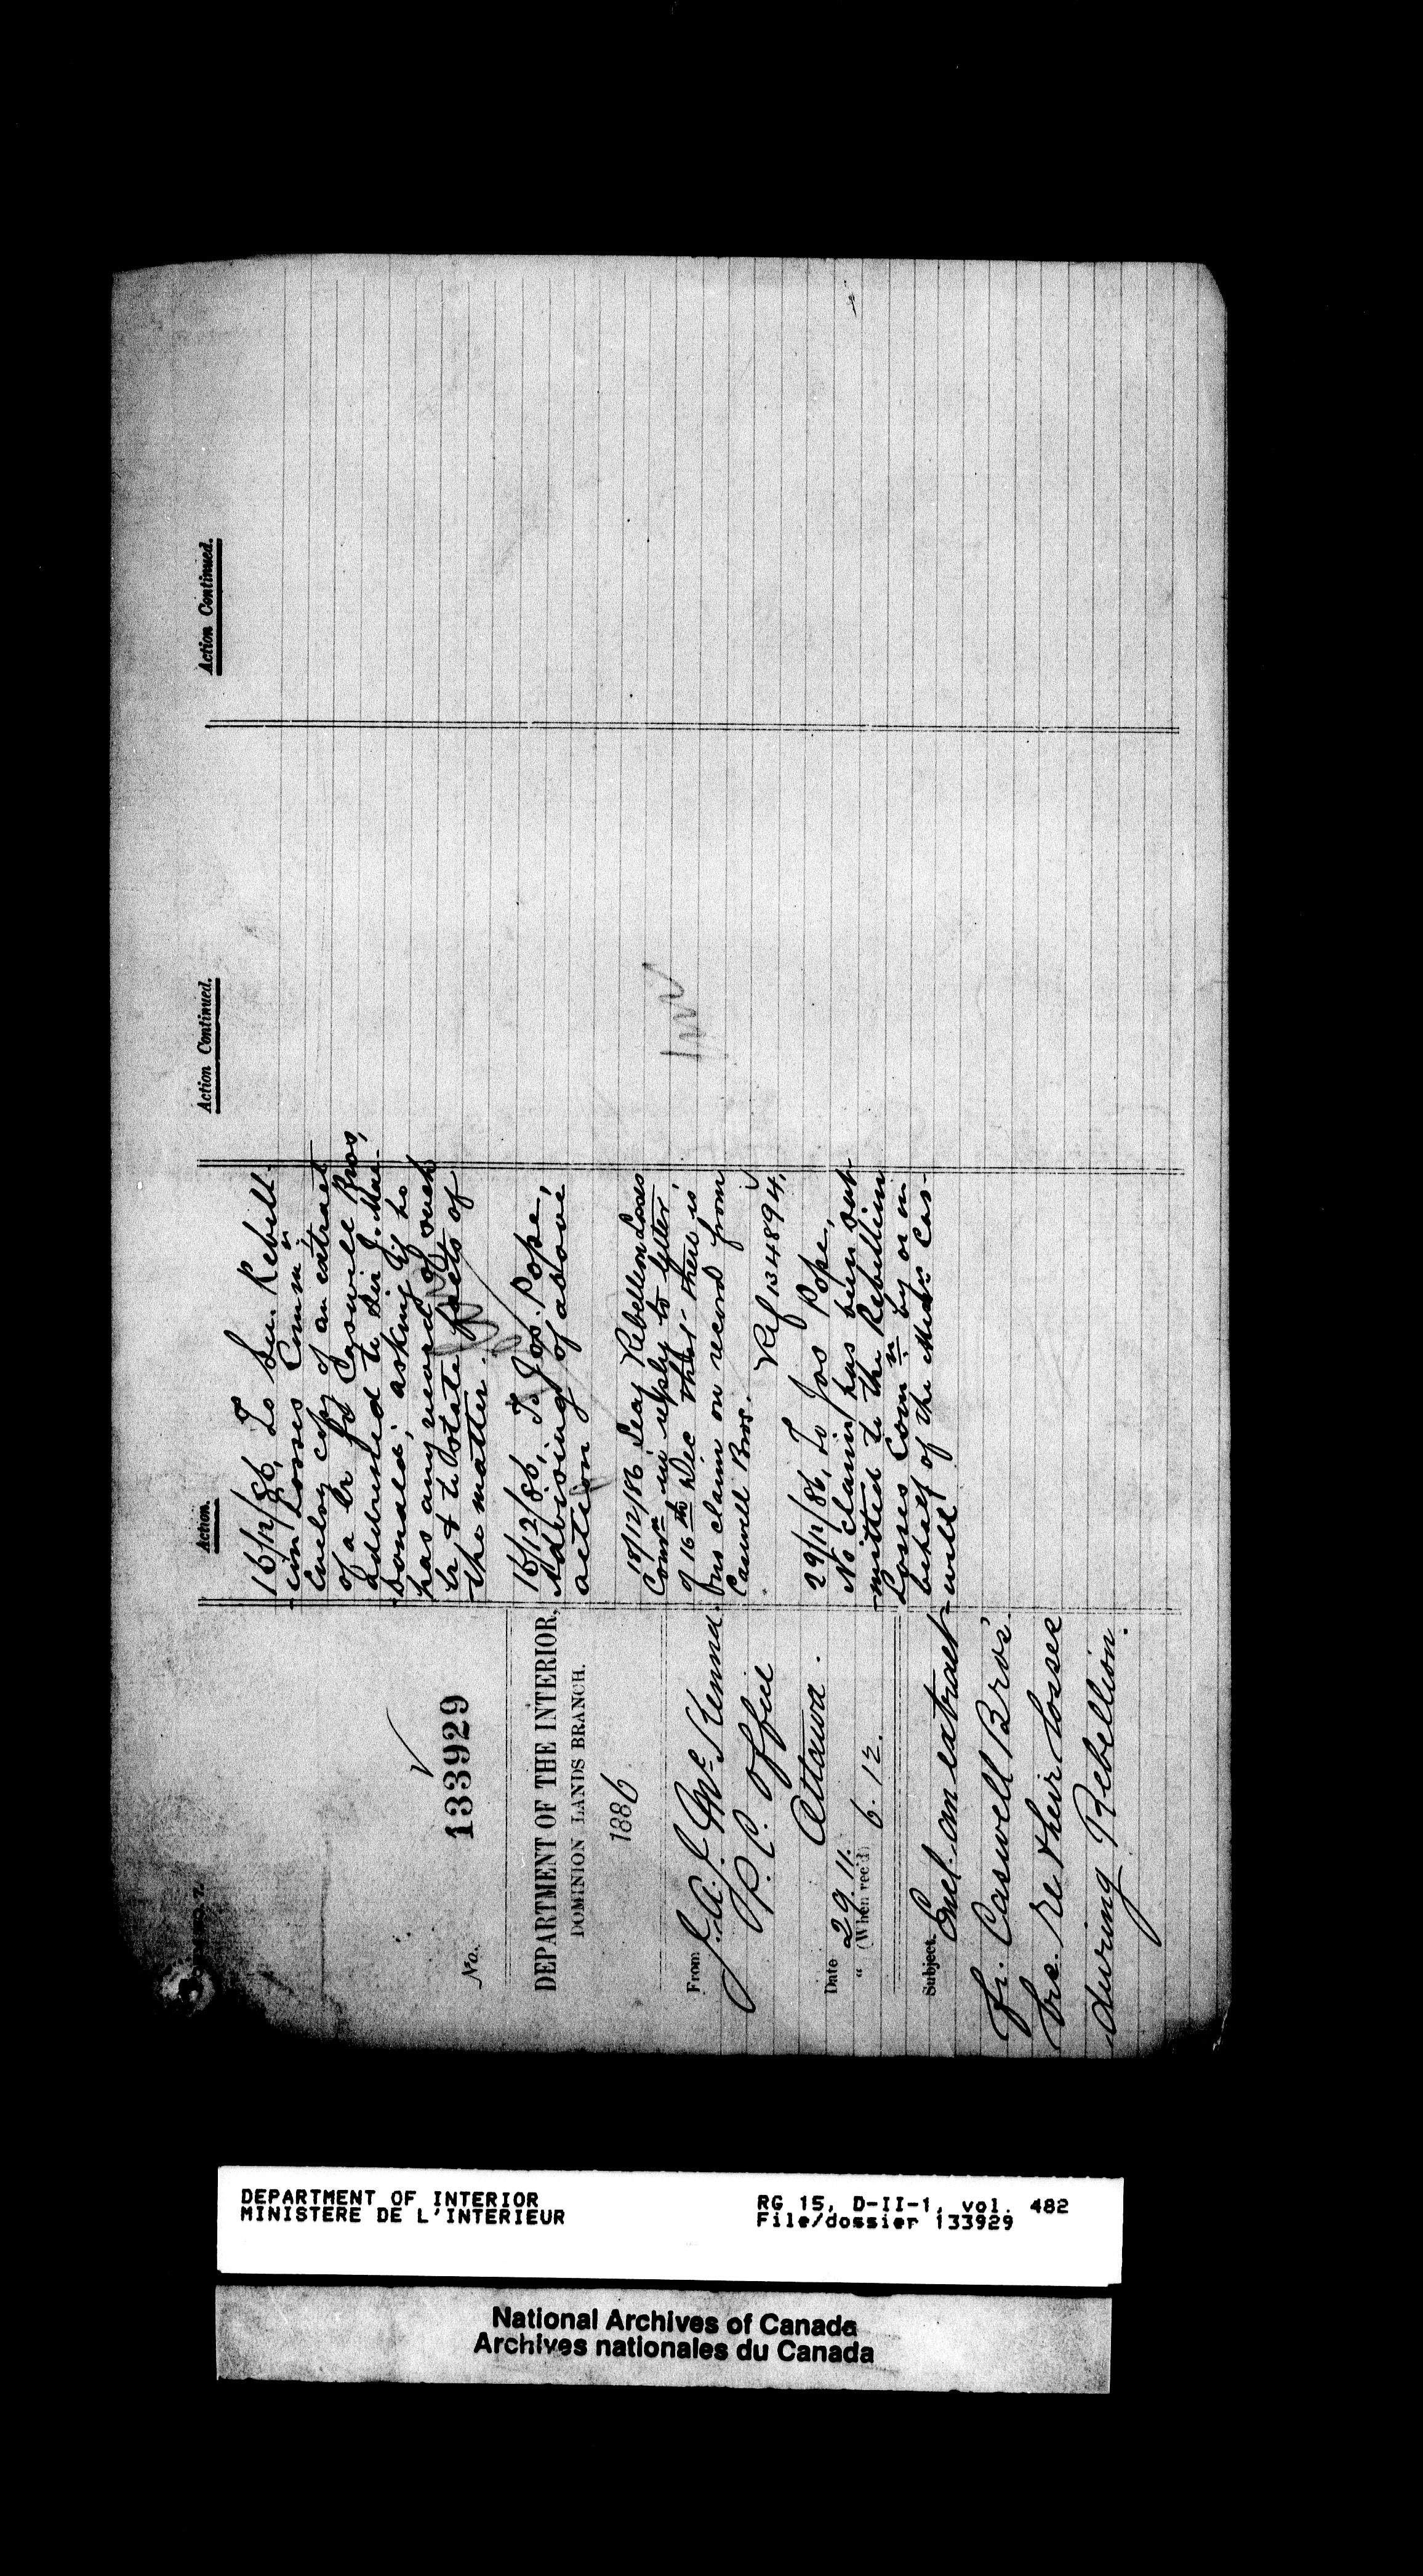 No. 133929
DEPARTMENT OF THE INTERIOR,
DOMINION LANDS BRANCH.
1886
From J. A. J. McKenna
P. C. Office
Ottawa.
Date 29. 11.
" (When rec'd) 6. 12.
Subject. Encl. an extract
fr. Caswell Bros.
re their losses
during Rebellion.
Action.
16/12/86, To Sec. Rebell-
-ion Losses Commn.
Encloy copy of an extract
of a lr fr Caswell Bros,
addressed to Sir J. Mac-
-donald; asking if he
has any record of such
lr & to state facts of
the matter.
16/12/86, To Jos. Pope,
Advising of above
action
18/12/86 Secy Rebellion Losses
Comn in reply to letter
of 16th Dec that there is
no claim on record from
Caswell Bros.
Ref 134894.
29/12/86, To Jos Pope,
No claim has been sub-
-mitted to the Rebellion
Losses Comn by or on
behalf of the Messrs Cas-
-well
Action Continued.
Action Continued.
DEPARTMENT OF INTERIOR
MINISTERE DE L'INTERIEUR
RG 15, D-II-1, vol. 482
File/dossier 133929
National Archives of Canada
Archives nationales du Canada